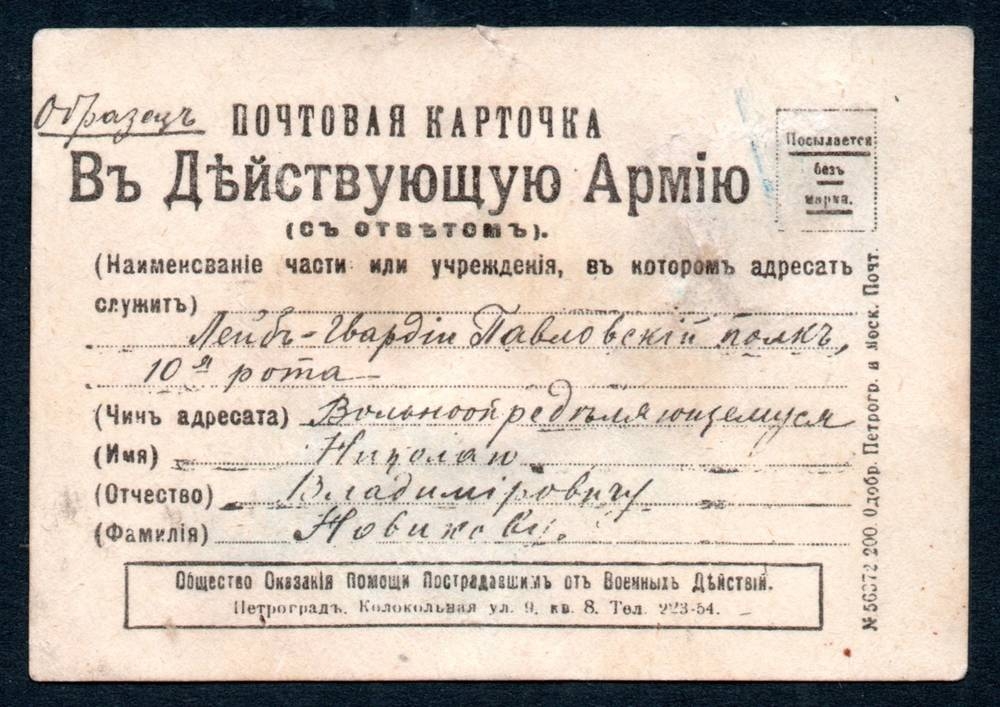 Образецъ
ПОЧТОВАЯ КАРТОЧКА
Въ Дѣйствующую Армію
(съ отвѣтомъ).
Посылается
безъ
марки.
(Наименованіе части или учрежденія, въ которомъ адресатъ
служитъ)
Лейбъ-Гвардіи Павловскій полкъ,
10я рота
(Чинъ адресата) Вольноопредѣляющемуся
(Имя) Николаю
(Отчество) Владиміровичу
(Фамилія) Новикову.
Общество Оказанія Помощи Пострадавшимъ отъ Военныхъ Дѣйствій.
Петроградъ, Колокольная ул. 9, кв. 8. Тел. 223-54.
200. Одобр. Петрогр. и Моск. Почт.